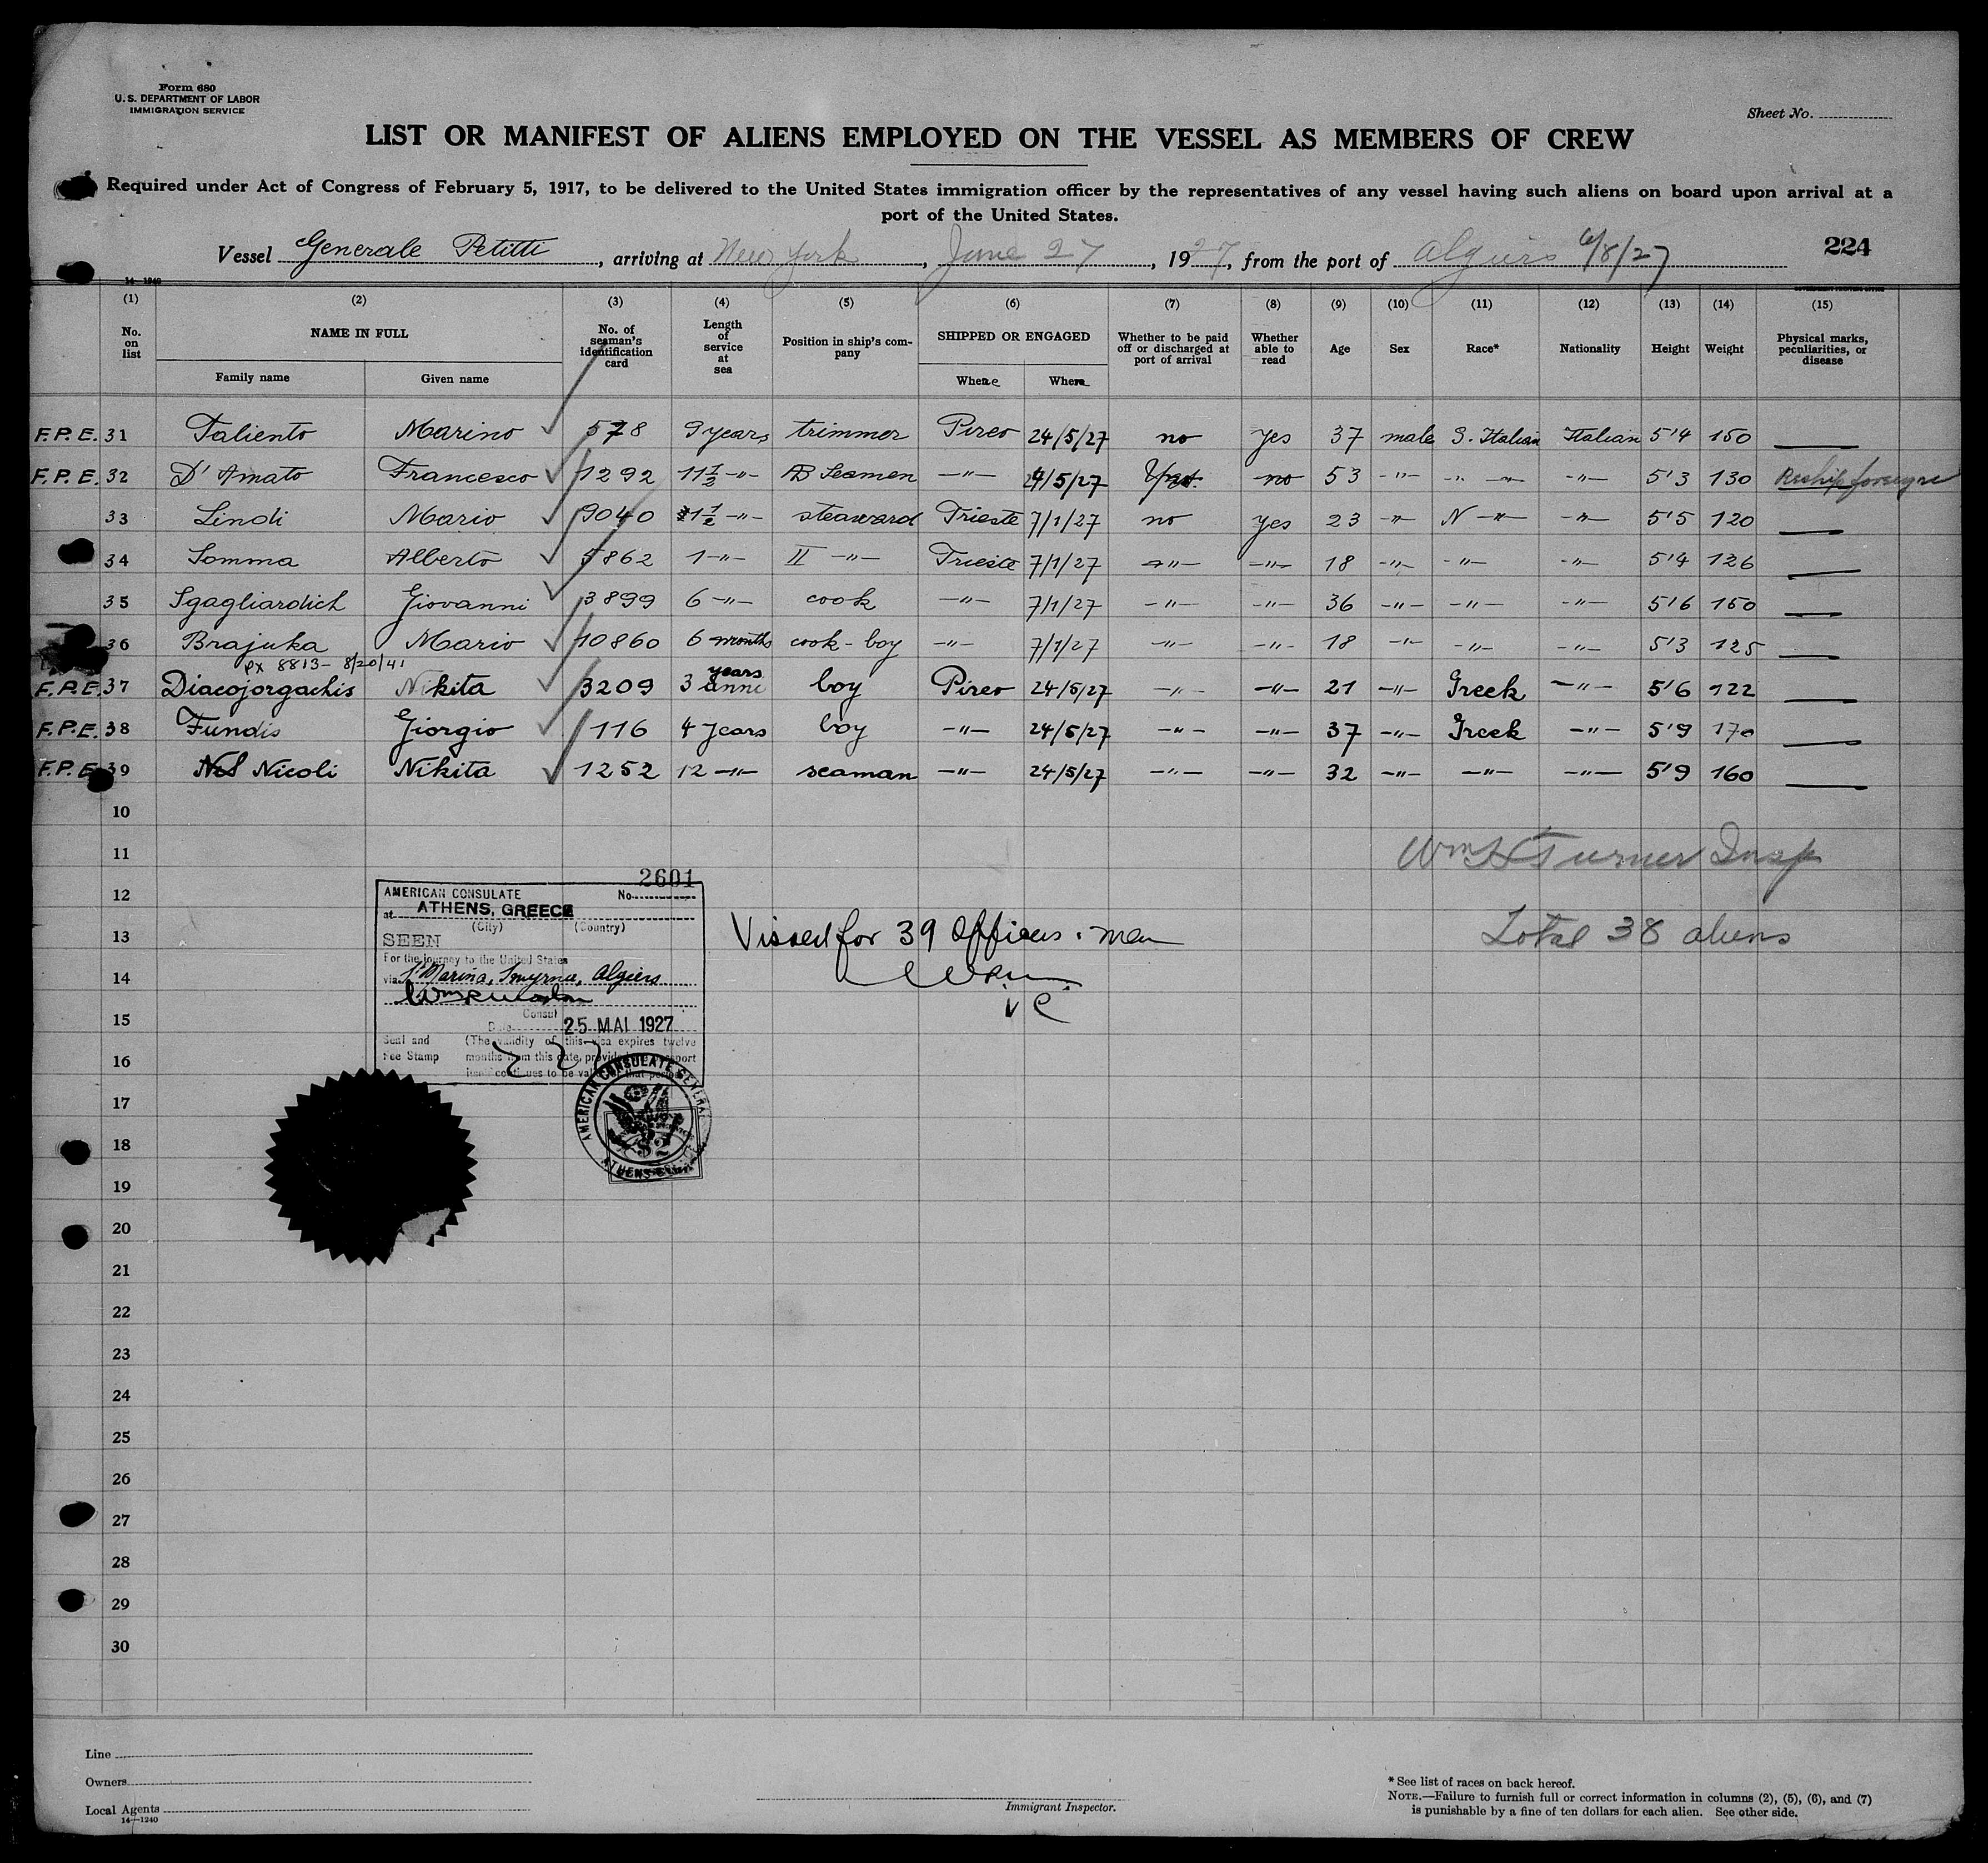 Form 680
U. S. DEPARTMENT OF LABOR
IMMIGRATION SERVICE
Sheet No.
LIST OR MANIFEST OF ALIENS EMPLOYED ON THE VESSEL AS MEMBERS OF CREW
Required under Act of Congress of February 5, 1917, to be delivered to the United States immigration officer by the representatives of any vessel having such aliens on board upon arrival at a
port of the United States.
Vessel Generale Petitti, arriving at New York, June 27, 1927, from the port of Algiers 6/8/27 224
14—1240
(1) (2) (3) (4) (5) (6) (7) (8) (9) (10) (11) (12) (13) (14) (15)
No. on list NAME IN FULL No. of seaman's identification card Length of service at sea Position in ship's company SHIPPED OR ENGAGED Whether to be paid off or discharged at port of arrival Whether able to read Age Sex Race* Nationality Height Weight Physical marks, peculiarities, or disease
Family name Given name Where When
F.P.E. 31 Taliento Marino 578 9 years trimmer Pireo 24/5/27 no yes 37 male S. Italian Italian 5'4 150 —
F.P.E. 32 D'Amato Francesco 1292 11 1/2 -"- AB Seamen -"- 24/5/27 no 53 -"- -"- -"- 5'3 130 Reship foreign
33 Lindi Mario 9040 1 1/2 -"- steaward Trieste 7/1/27 no yes 23 -"- N -"- -"- 5'5 120 —
34 Somma Alberto 5862 1 -"- II -"- Trieste 7/1/27 -"- -"- 18 -"- -"- -"- 5'4 126 —
35 Sgagliardich Giovanni 3899 6 -"- cook -"- 7/1/27 -"- -"- 36 -"- -"- -"- 5'6 150 —
36 Brajuka Mario 10860 6 months cook-boy -"- 7/1/27 -"- -"- 18 -"- -"- -"- 5'3 125 —
px 8813- 8/20/41
F.P.E. 37 Diacojorgachis Nikita 3209 3 anni years boy Pireo 24/5/27 -"- -"- 21 -"- Greek -"- 5'6 122 —
F.P.E. 38 Fundis Giorgio 116 4 years boy -"- 24/5/27 -"- -"- 37 -"- Greek -"- 5'9 170 —
F.P.E. 39 Nicoli Nikita 1252 12 -"- seaman -"- 24/5/27 -"- -"- 32 -"- -"- -"- 5'9 160 —
10
11
Wm H Turner Insp
12
13
Total 38 aliens
14
15
16
17
18
19
20
21
22
23
24
25
26
27
28
29
30
2601
AMERICAN CONSULATE No.
at ATHENS, GREECE
(City) (Country)
SEEN
For the journey to the United States
via St Marina, Smyrna, Algiers
Consul
Date 25 MAI 1927
Seal and Fee Stamp
(The validity of this visa expires twelve
months from this date, provided the passport
continues to be valid for that period
AMERICAN CONSULATE GENERAL
ATHENS
Visaed for 39 Officers & men
V C.
Line
Owners
Local Agents
14—1240
Immigrant Inspector.
* See list of races on back hereof.
NOTE.—Failure to furnish full or correct information in columns (2), (5), (6), and (7)
is punishable by a fine of ten dollars for each alien. See other side.